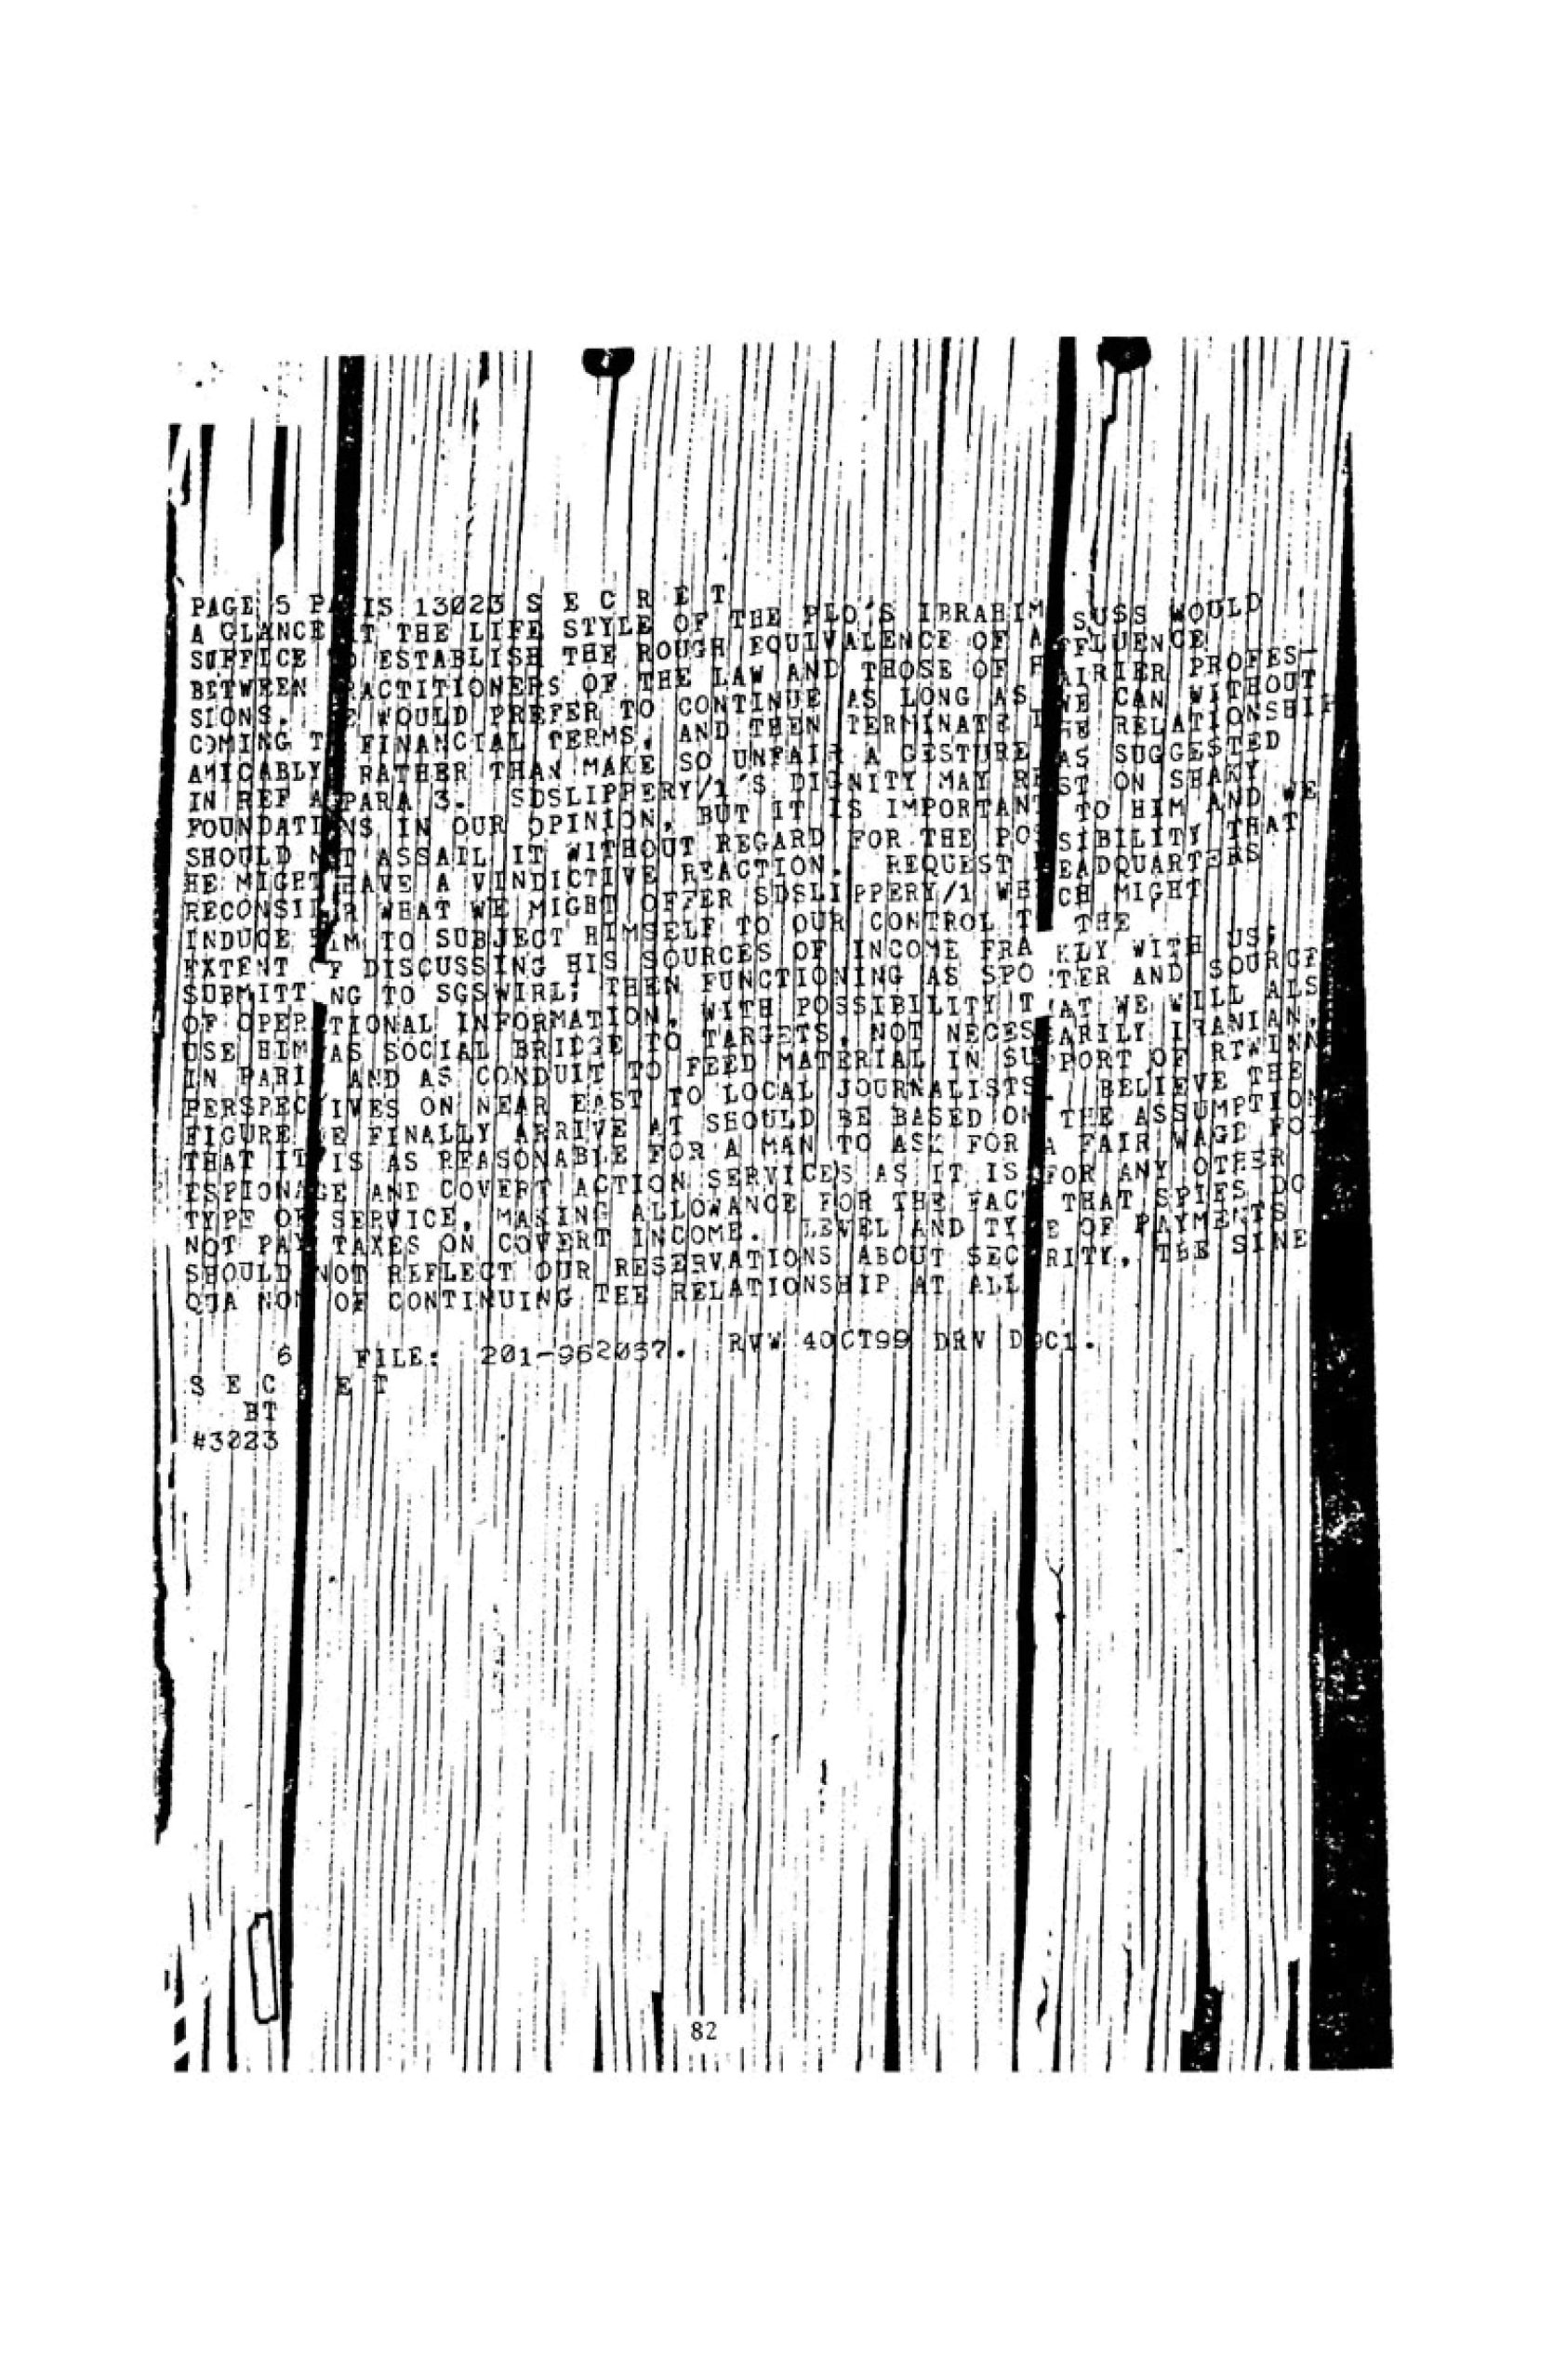 PAGE 5 PARIS 13023 S E C R E T
A GLANCE AT THE LIFE STYLE OF THE PLO'S IBRAHIM SUSS WOULD
SUFFICE TO ESTABLISH THE ROUGH EQUIVALENCE OF AFFLUENCE
BETWEEN PRACTITIONERS OF THE LAW AND THOSE OF PROFES-
SIONS. WE WOULD PREFER TO CONTINUE AS LONG AS WE CAN WITHOUT
COMING TO FINANCIAL TERMS, AND THEN TERMINATE
AMICABLY RATHER THAN MAKE SO UNFAIR A GESTURE AS SUGGESTED
IN REF A PARA 3. SDSLIPPERY/1'S DIGNITY MAY REST ON SHAKY
FOUNDATIONS IN OUR OPINION, BUT IT IS IMPORTANT TO HIM AND WE
SHOULD NOT ASSAIL IT WITHOUT REGARD FOR THE POSSIBILITY THAT
HE MIGHT HAVE A VINDICTIVE REACTION. REQUEST HEADQUARTERS
RECONSIDER WHAT WE MIGHT OFFER SDSLIPPERY/1 WHICH MIGHT
INDUCE HIM TO SUBJECT HIMSELF TO OUR CONTROL TO THE
EXTENT OF DISCUSSING HIS SOURCES OF INCOME FRANKLY WITH US;
SUBMITTING TO SGSWIRL; THEN FUNCTIONING AS SPOTTER AND SOURCE
OF OPERATIONAL INFORMATION, WITH POSSIBILITY THAT WE WILL ALSO
USE HIM AS SOCIAL BRIDGE TO TARGETS, NOT NECESSARILY IRANIAN,
IN PARIS AND AS CONDUIT TO FEED MATERIAL IN SUPPORT OF
PERSPECTIVES ON NEAR EAST TO LOCAL JOURNALISTS. THE
FIGURE WE FINALLY ARRIVE AT SHOULD BE BASED ON THE
THAT IT IS AS REASONABLE FOR A MAN TO ASK FOR A FAIR WAGE FOR
ESPIONAGE AND COVERT ACTION SERVICES AS IT IS FOR ANY OTHER
TYPE OF SERVICE, MAKING ALLOWANCE FOR THE FACT THAT SPIES DO
NOT PAY TAXES ON COVERT INCOME. LEVEL AND TYPE OF PAYMENT
SHOULD NOT REFLECT OUR RESERVATIONS ABOUT SECURITY, THE SINE
QUA NON OF CONTINUING THE RELATIONSHIP AT ALL
6 FILE: 201-962037. RVW 4OCT99 DRV D9C1.
S E C R E T
BT
#3023
82